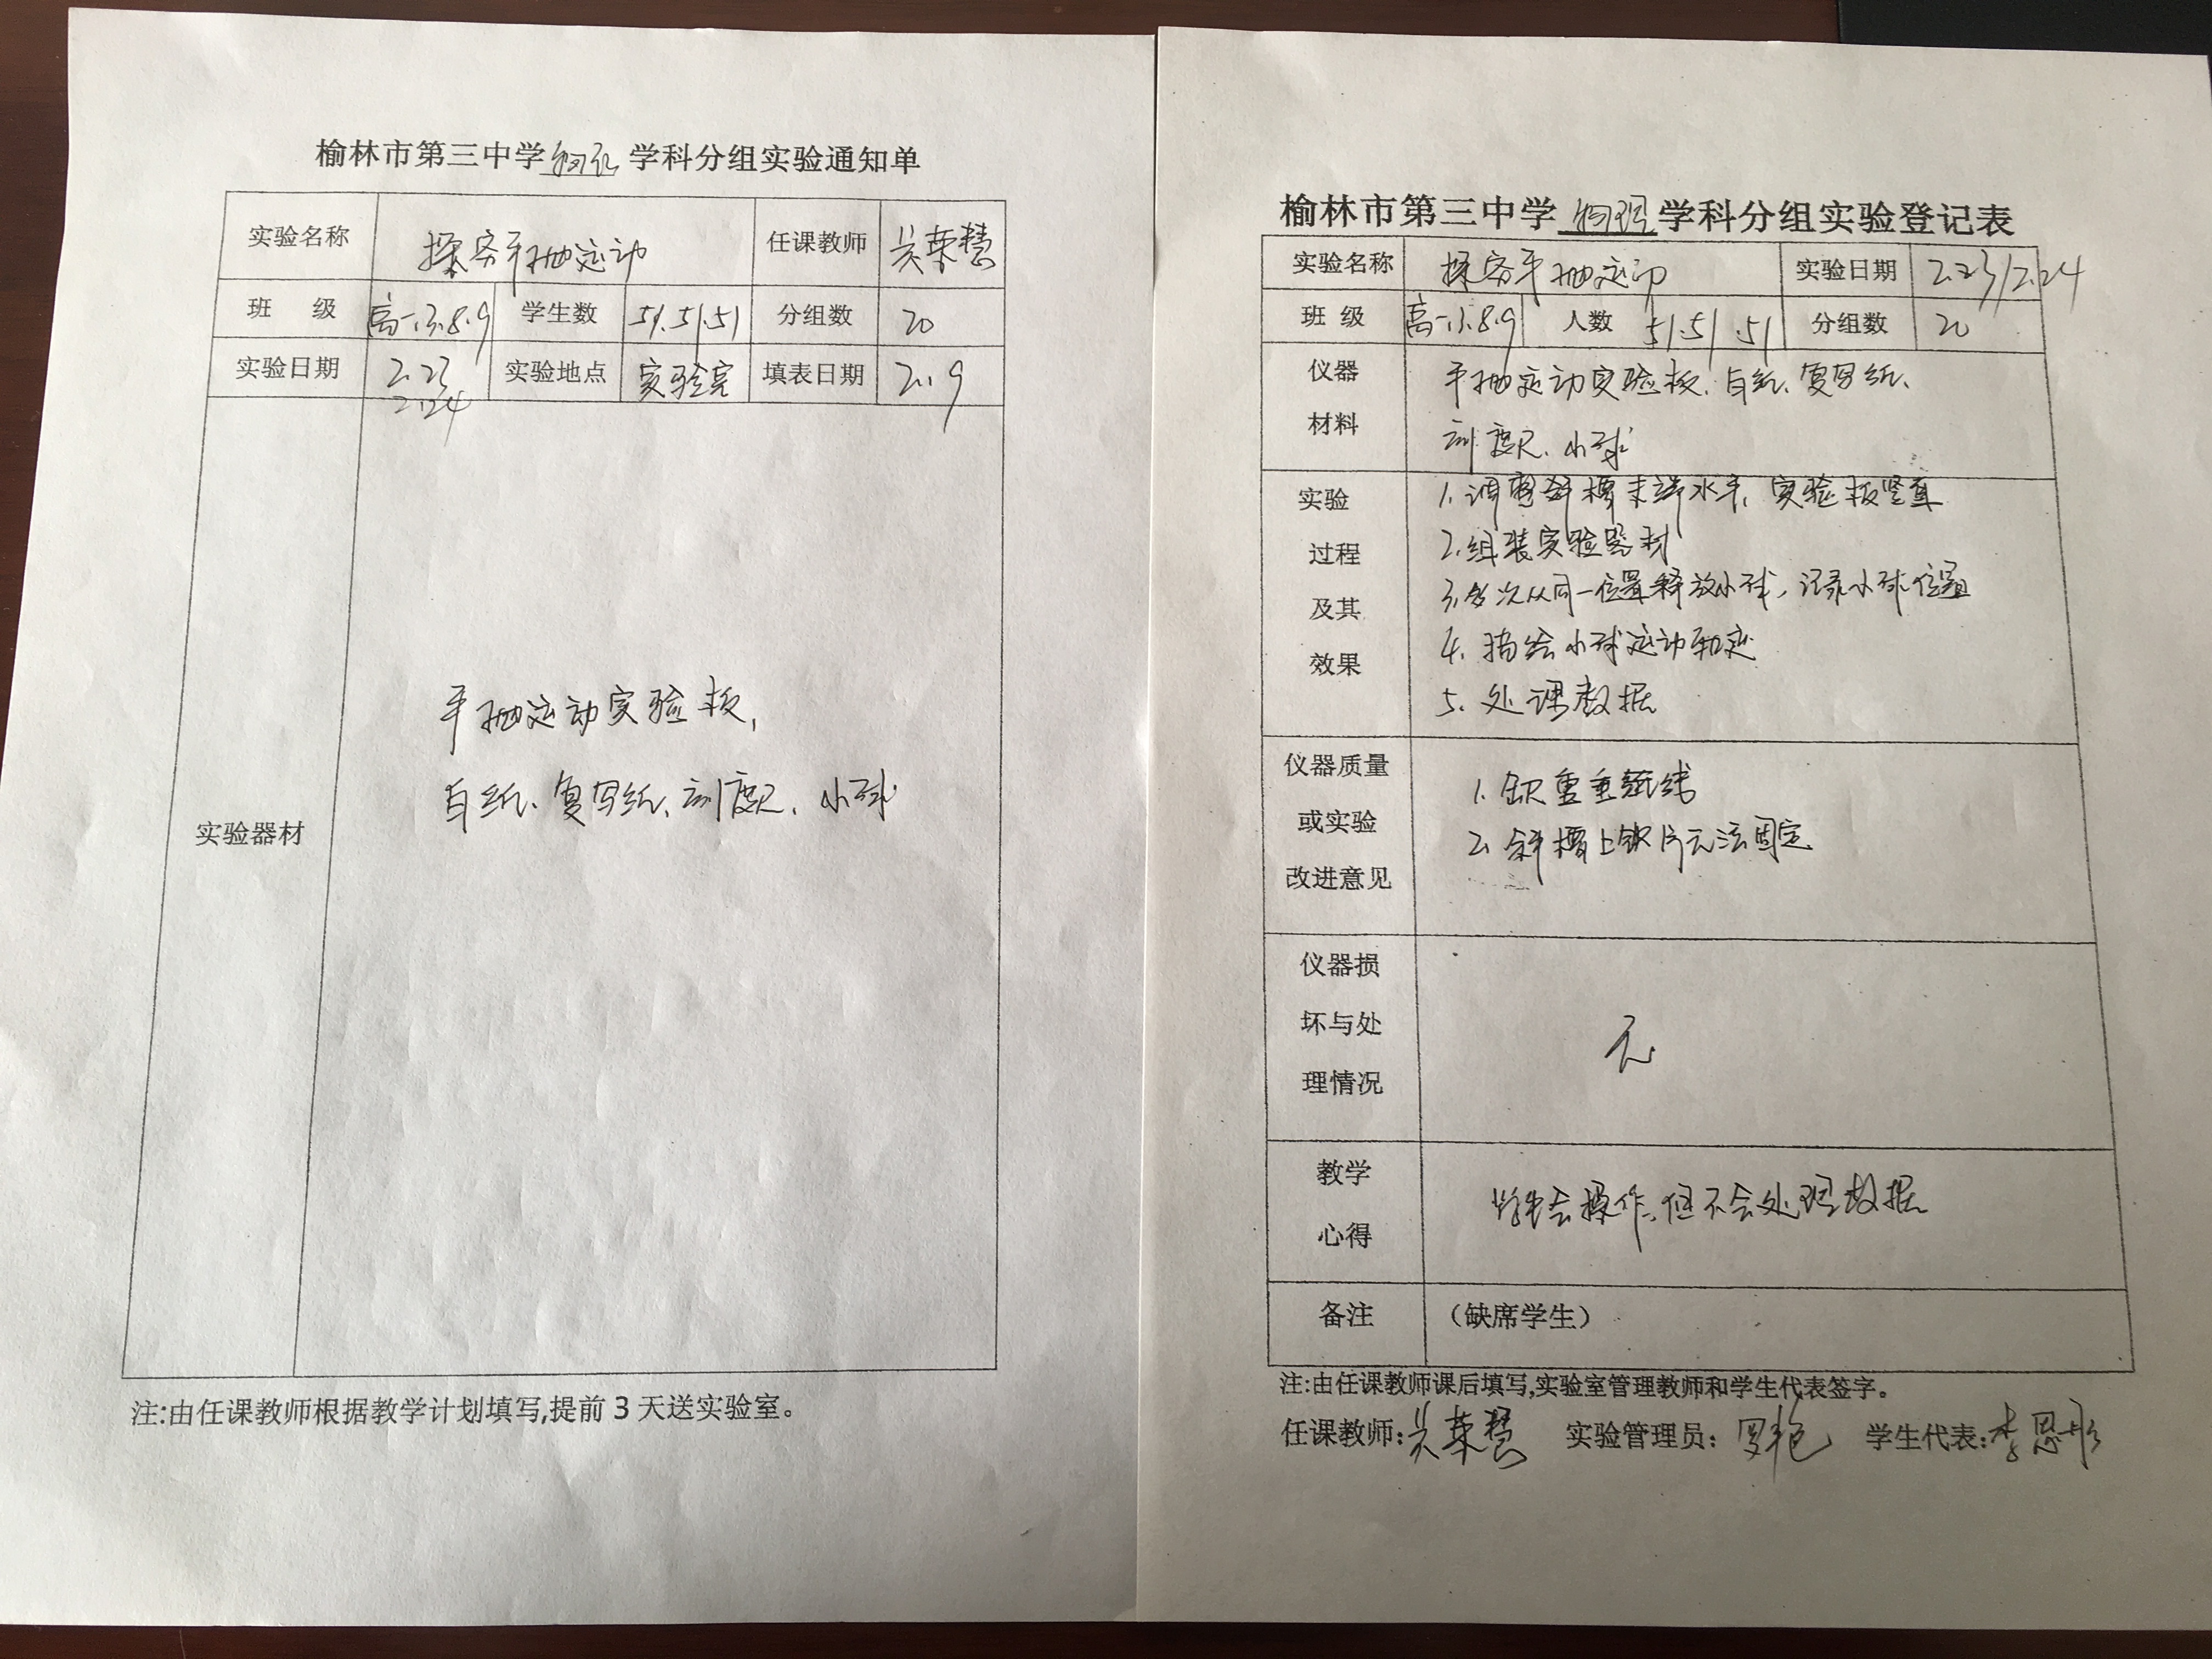 榆林市第三中学物理学科分组实验通知单
实验名称 探究平抛运动 任课教师 吴荣慧
班 级 高一.3.8.9 学生数 51.51.51 分组数 20
实验日期 2.23 实验地点 实验室 填表日期 2.19
2.24
平抛运动实验板,
白纸、复写纸、刻度尺、小球
实验器材
注:由任课教师根据教学计划填写,提前 3 天送实验室。
榆林市第三中学物理学科分组实验登记表
实验名称 探究平抛运动 实验日期 2.23/2.24
班 级 高一.3.8.9 人数 51.51.51 分组数 20
仪器 平抛运动实验板、白纸、复写纸、
材料 刻度尺、小球
实验 1. 调整斜槽末端水平、实验板竖直
过程 2. 组装实验器材
及其 3. 多次从同一位置释放小球,记录小球位置
效果 4. 描绘小球运动轨迹
5. 处理数据
仪器质量 1. 缺重垂线
或实验 2. 斜槽上铁片无法固定
改进意见
仪器损
坏与处 无
理情况
教学 学生会操作,但不会处理数据
心得
备注 (缺席学生)
注:由任课教师课后填写,实验室管理教师和学生代表签字。
任课教师:吴荣慧 实验管理员:罗艳 学生代表:李思彤